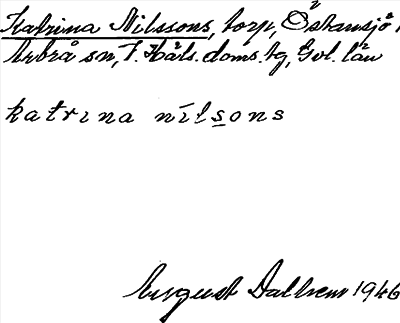 Katrina Nilssons, torp, Östansjö,
Arbrå sn, V. Häls. doms. bg, Gvl. län
katrina nilsons
August Dalhem 1946